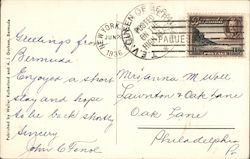 Greetings from
Bermuda
Enjoyed a short
stay and hope
to be back shortly
Sincerely
John C
Mrs Anna M Woll
Lawnton & Oak Lane
Oak Lane
Philadelphia
NEW YORK
1936
PAQUEBOT
Bermuda
POSTAGE
Published by Walter Rutherford and A.J. Gorham, Bermuda